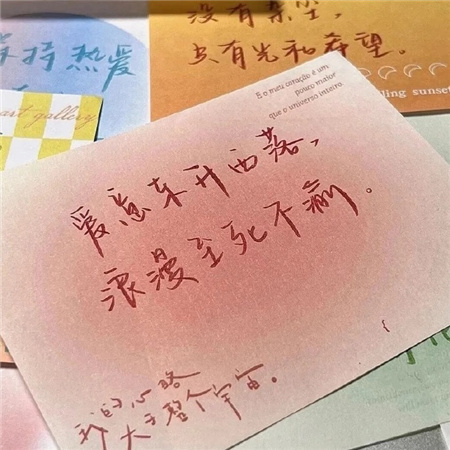 没有杂尘,
只有光和希望。
ling sunset
持热爱
art gallery
E o meu coração é um
pouco maior
que o universo inteiro
爱意东升西落,
浪漫至死不渝。
我的心略
大于整个宇宙。